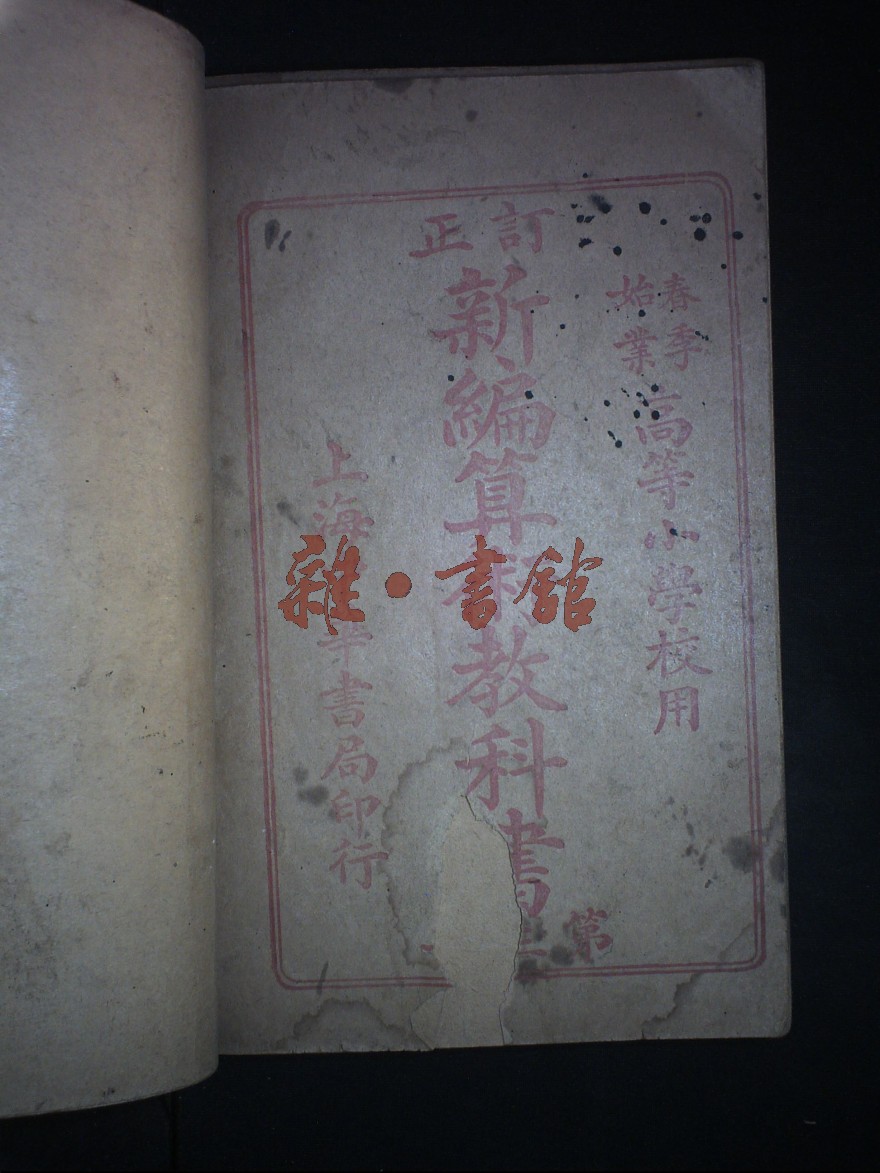 春季
始業
高等小學校用
訂正
新編算術教科書
第
上海
書局印行
雜·書館